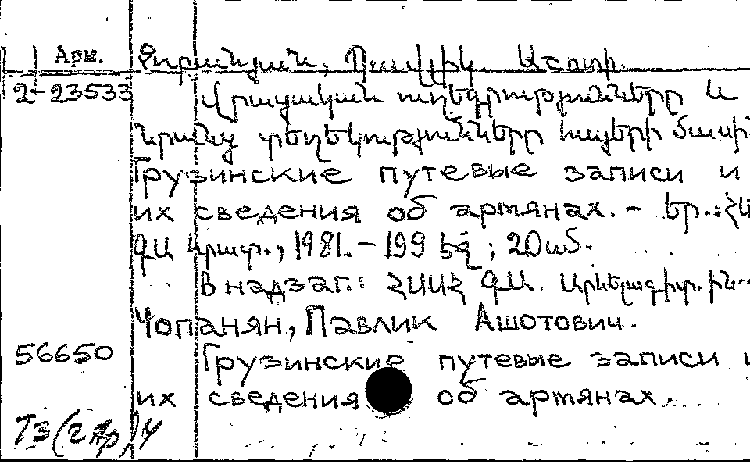 Арм. Չոփանյան, Պավլիկ Աշոտի.
2-23533 Վրացական ուղեգրությունները և
նրանց տեղեկությունները հայերի մասին
Грузинские путевые записи и
их сведения об артянах. - Եր.: ՀՍ
ԳԱ հրատ., 1981. - 199 էջ; 20սմ.
В надзаг.: ՀՍՍՀ ԳԱ. Արևելագիտ. ին-
Чопанян, Павлик Ашотович.
56650 Грузинские путевые записи и
их сведения об артянах.
ТЗ(2Ар)У